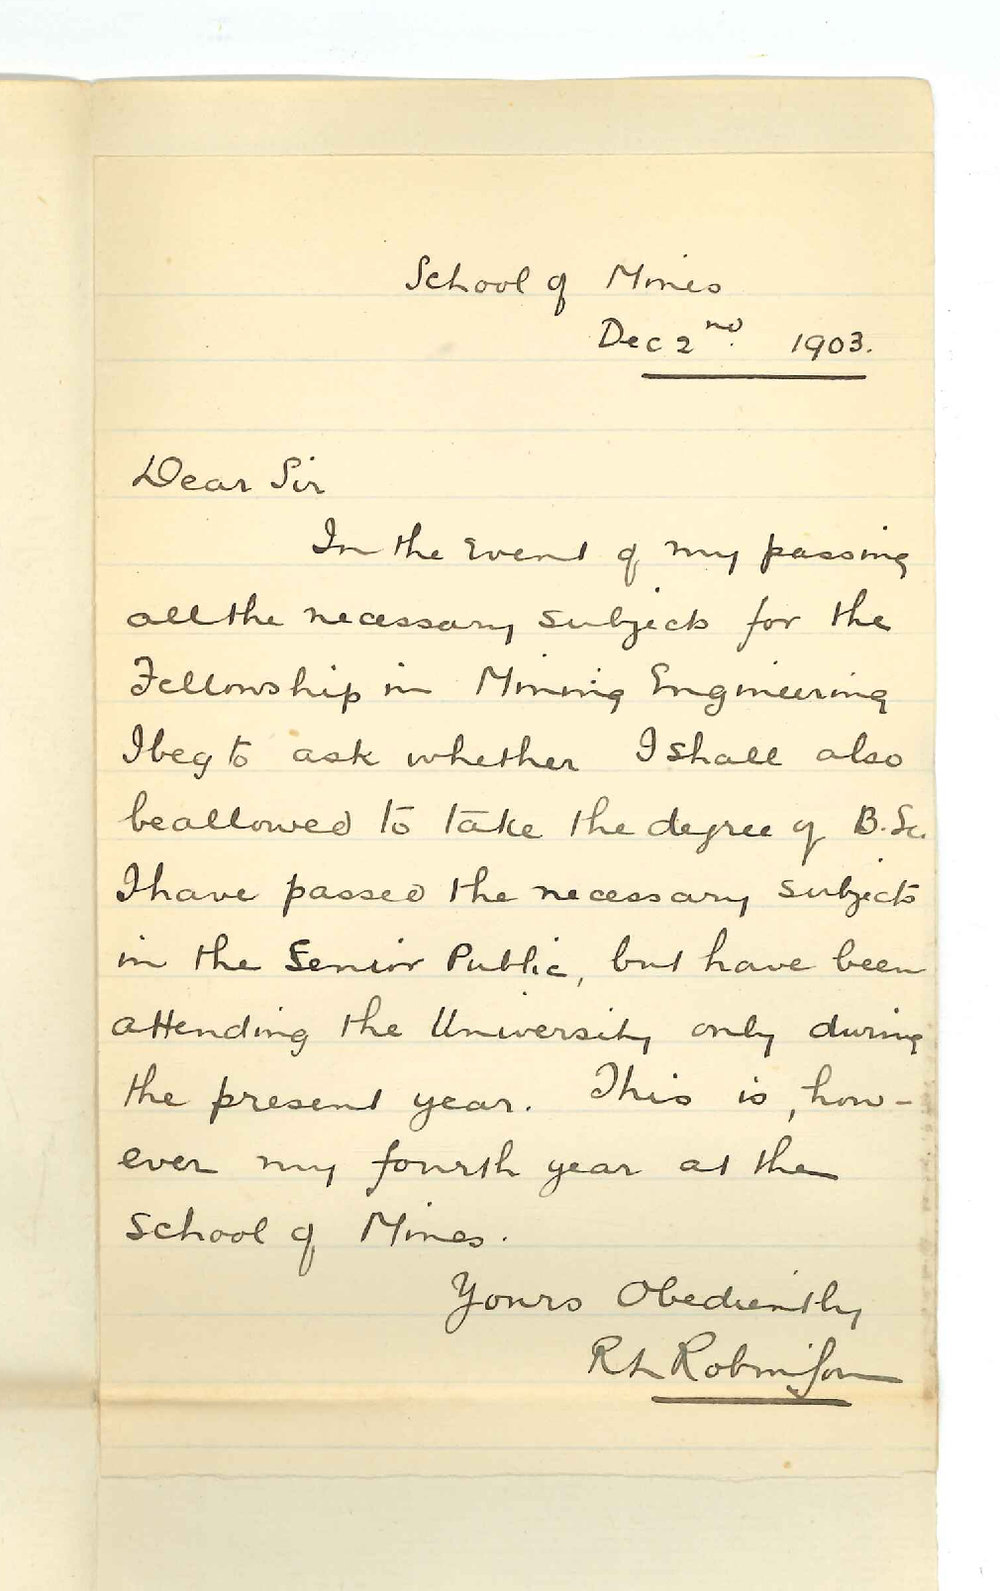 School of Mines
Dec 2nd. 1903.
Dear Sir
In the event of my passing
all the necessary subjects for the
Fellowship in Mining Engineering
I beg to ask whether I shall also
be allowed to take the degree of B.Sc.
I have passed the necessary subjects
in the Senior Public, but have been
attending the University only during
the present year. This is, how-
ever my fourth year at the
School of Mines.
Yours Obediently
R L Robinson